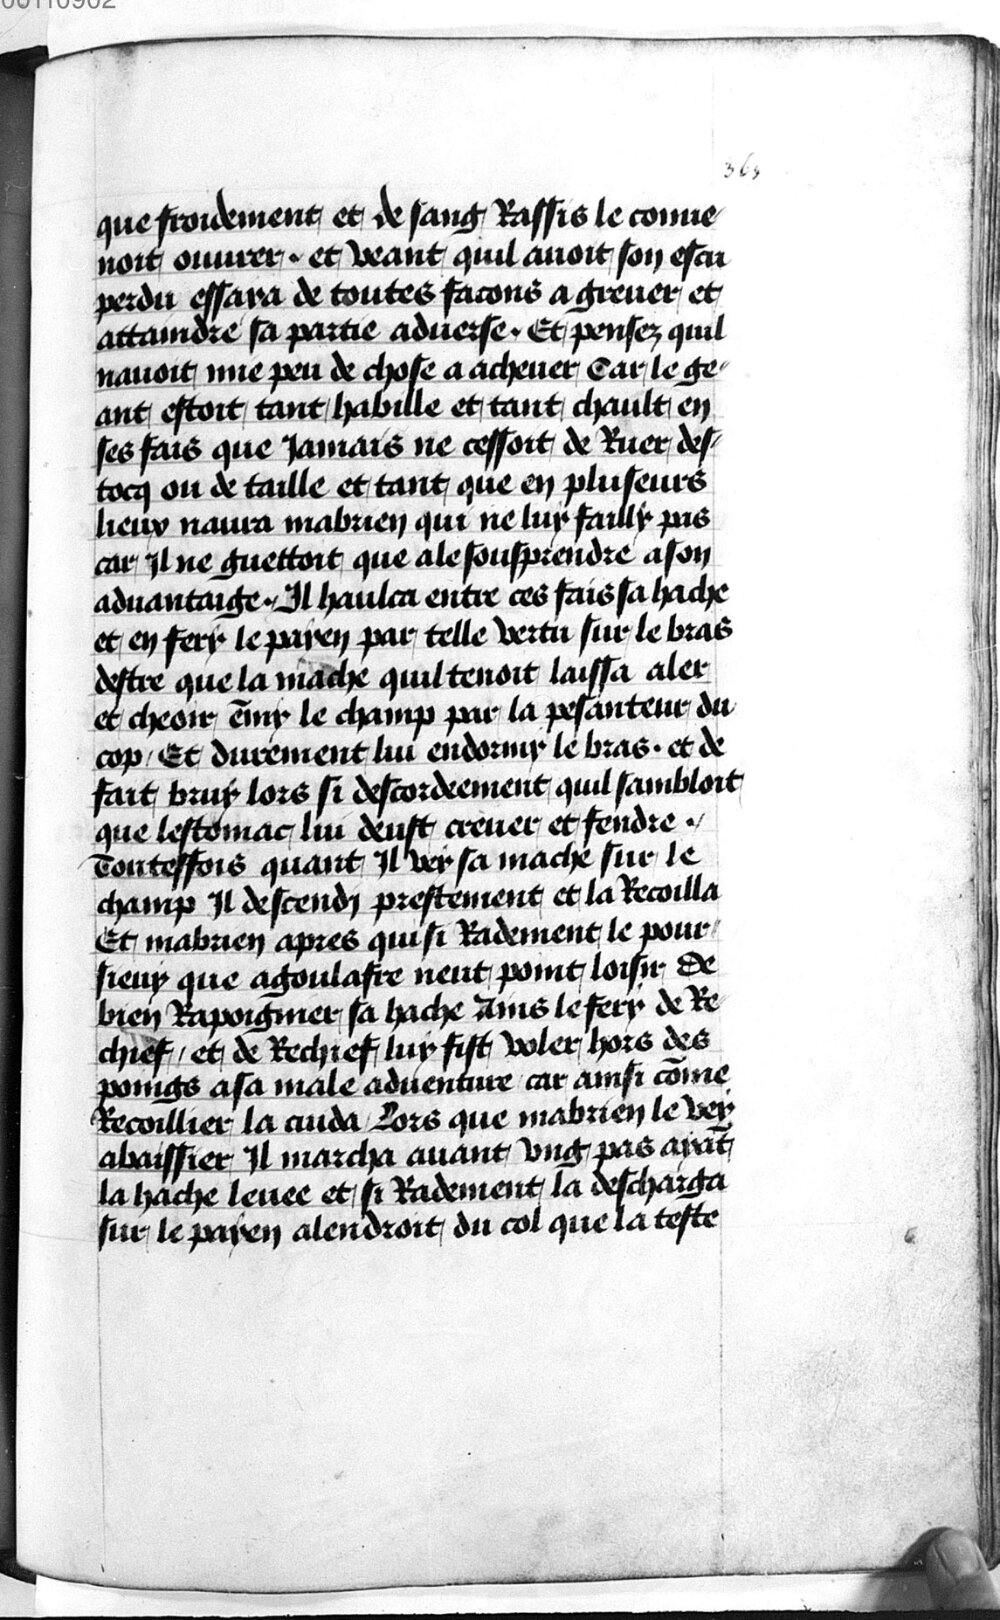 00110902
365
que froidement et de sang Rassis le conue
noit ouurer . et veant quil auoit son escu
perdu essaya de toutes facons a greuer et
attaindre sa partie aduerse . Et pensez quil
nauoit mie peu de chose a acheuer Car le ge
ant estoit tant habille et tant chault en
ses fais que Jamais ne cessoit de Ruer des
tocq ou de taille et tant que en pluseurs
lieux naura mabrien qui ne luy failly pas
car Il ne guettoit que a le sousprendre a son
aduantaige . Il haulca entre ces fais sa hache
et en fery le payen par telle vertu sur le bras
destre que la mache quil tenoit laissa aler
et cheoir ēmy le champ par la pesanteur du
cop / Et durement lui endormy le bras . et de
fait bruy lors si descordeement quil sambloit
que lestomac lui deust creuer et fendre ./
Touteffois quant Il vey sa mache sur le
champ Il descendy prestement et la Recoilla
Et mabrien apres qui si Radement le pour
sieuy que agoulafre neut point loisir de
bien Rapoignier sa hache Ains le fery de Re
chief / et de Rechief luy fist voler hors des
poings a sa male aduenture car ainsi cōme
Recoillier la cuida Lors que mabrien le vey
abaissier Il marcha auant vng pas ayāt
la hache leuee et si Radement la descharga
sur le payen alendroit du col que la teste